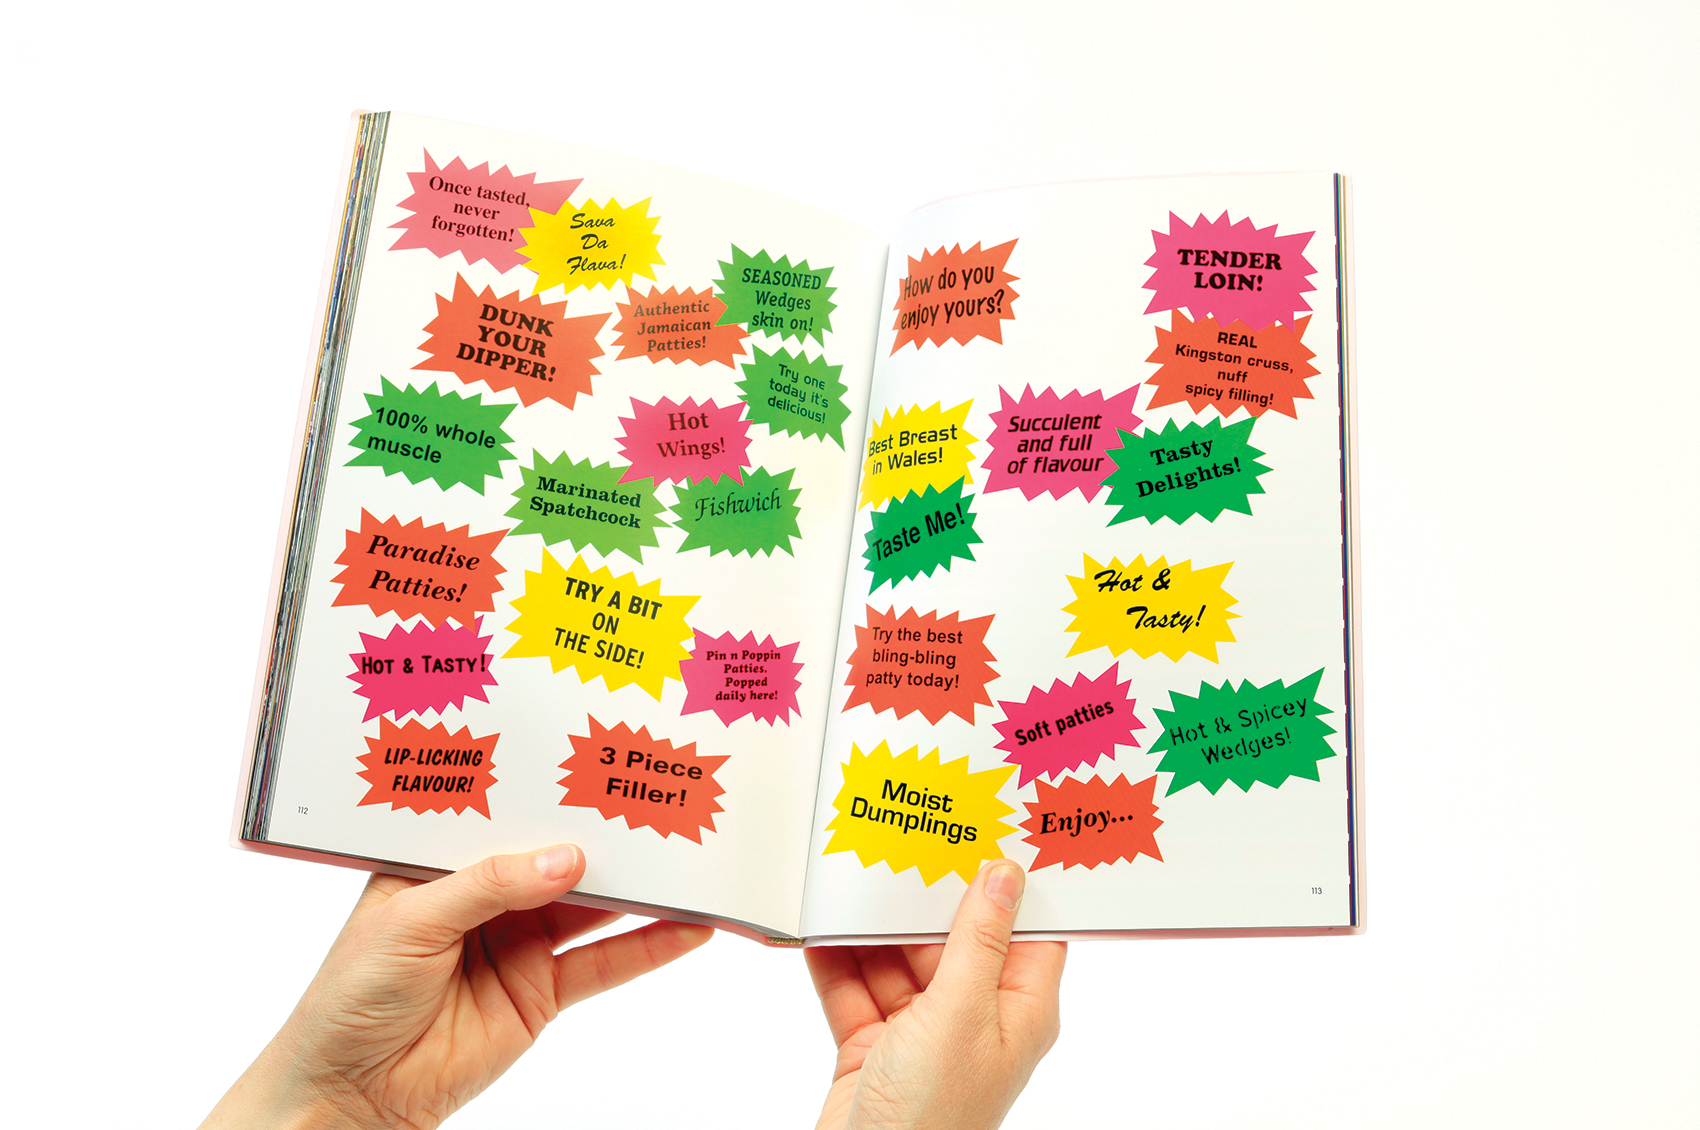 Once tasted,
never
forgotten!
Sava
Da
Flava!
SEASONED
Wedges
skin on!
DUNK
YOUR
DIPPER!
Authentic
Jamaican
Patties!
Try one
today it's
delicious!
100% whole
muscle
Hot
Wings!
Marinated
Spatchcock
Fishwich
Paradise
Patties!
TRY A BIT
ON
THE SIDE!
HOT & TASTY!
Pin n Poppin
Patties.
Popped
daily here!
LIP-LICKING
FLAVOUR!
3 Piece
Filler!
112
How do you
enjoy yours?
TENDER
LOIN!
REAL
Kingston cruss,
nuff
spicy filling!
Best Breast
in Wales!
Succulent
and full
of flavour
Tasty
Delights!
Taste Me!
Hot &
Tasty!
Try the best
bling-bling
patty today!
Soft patties
Hot & Spicey
Wedges!
Moist
Dumplings
Enjoy...
113